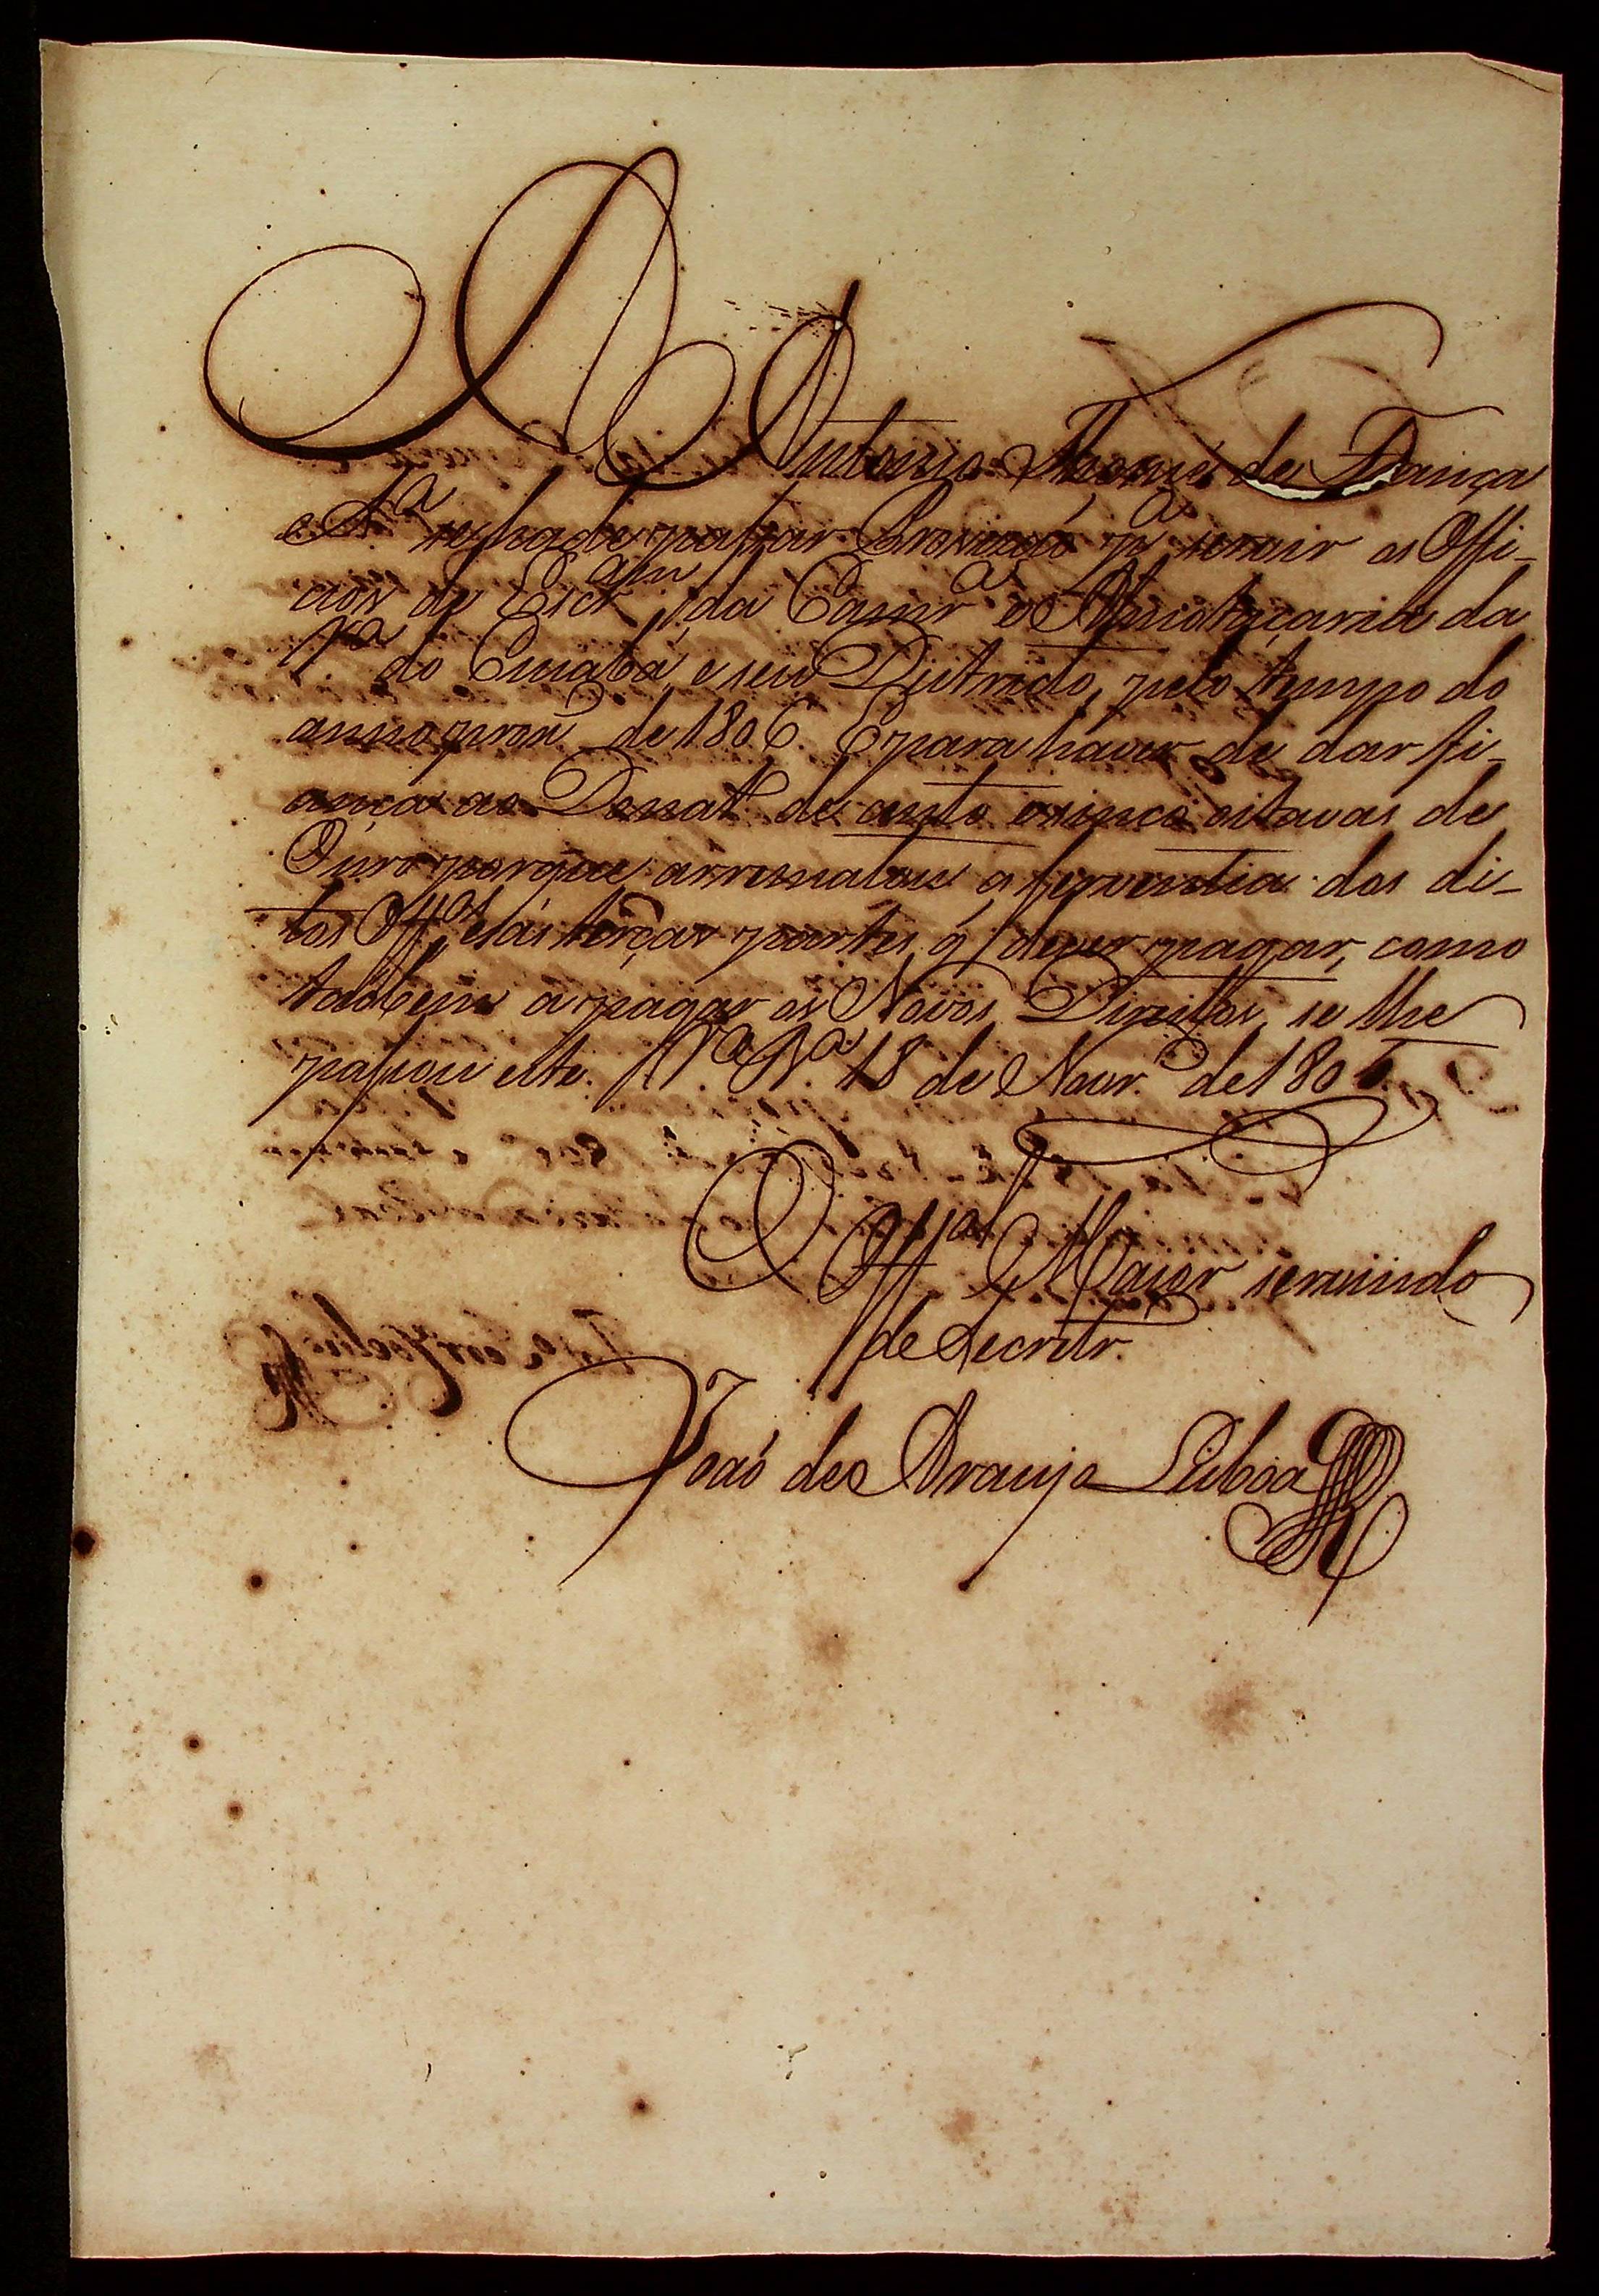 A Antonio Thomé de França
e Sá se ha de passar Provizaõ pª servir os Offi-
cios de Escram da Camrª e Almotaçaria da
Vª do Cuiabá e seu Districto, pelo tempo do
anno prox de 1806. E para haver de dar fi-
ança ao Donat de cento e cinco oitavas de
Ouro porque arrematou a serventia dos di-
tos Offos e ás terças partes q̃ dever pagar, como
tambem a pagar os Novos Direitos, se lhe
passou este. Vª Bª 18 de Novro de 180
O Offal Maior servindo
de Secretr.
Joaó de Araujo Lisboa